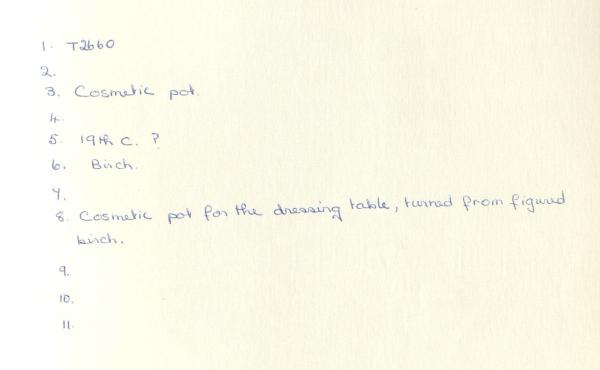 1. T2660
2.
3. Cosmetic pot.
4.
5. 19th C. ?
6. Birch.
7.
8. Cosmetic pot for the dressing table, turned from figured
birch.
9.
10.
11.